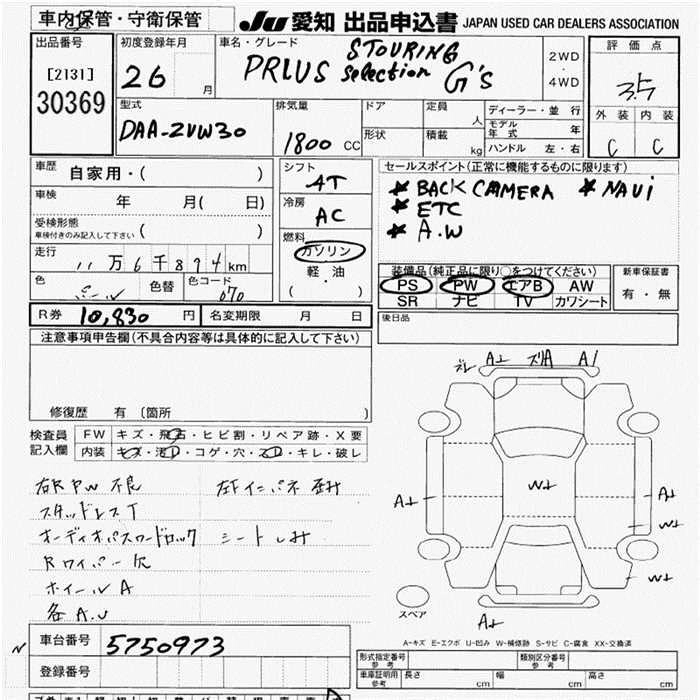 車内保管・守衛保管
JU 愛知 出品申込書 JAPAN USED CAR DEALERS ASSOCIATION
出品番号
[2131]
30369
初度登録年月
26 月
車名・グレード
STOURING
PRIUS Selection G's
2WD
・
4WD
評価点
3.5
外装 内装
C C
型式
DAA-ZVW30
排気量
1800 CC
ドア
形状
定員
人
積載
kg
ディーラー・並行
モデル年式 年
ハンドル 左・右
車歴 自家用・( )
車検 年 月( 日)
受検形態
車検付きのみ記入して下さい ( )
走行 11万6千894km
色 パール 色替 色コード 070
シフト
AT
冷房
AC
燃料
ガソリン
軽・油
( ・ )
セールスポイント(正常に機能するものに限ります)
* BACK CAMERA * NAVi
* ETC
* A.W
装備品(純正品に限り○をつけてください)
PS PW エアB AW
SR ナビ TV カワシート
新車保証書
有・無
R券 10,830 円 名変期限 月 日
後日品
注意事項申告欄(不具合内容等は具体的に記入して下さい)
修復歴 有 [箇所 ]
検査員
記入欄
FW キズ・飛石・ヒビ割・リペア跡・X要
内装 キズ・汚れ・コゲ・穴・スレ・キレ・破レ
右R PW 不良
スタッドレスT
オーディオパスワードロック シートしみ
Rワイパー欠
ホイールA
各A.U
A1
W
A
W
W
スペア
A-キズ E-エクボ U-凹み W-補修跡 S-サビ C-腐食 XX-交換済
N
車台番号 5750973
登録番号
形式指定番号
参考
類別区分番号
参考
車庫証明用
参考
長さ cm 幅 cm 高さ cm